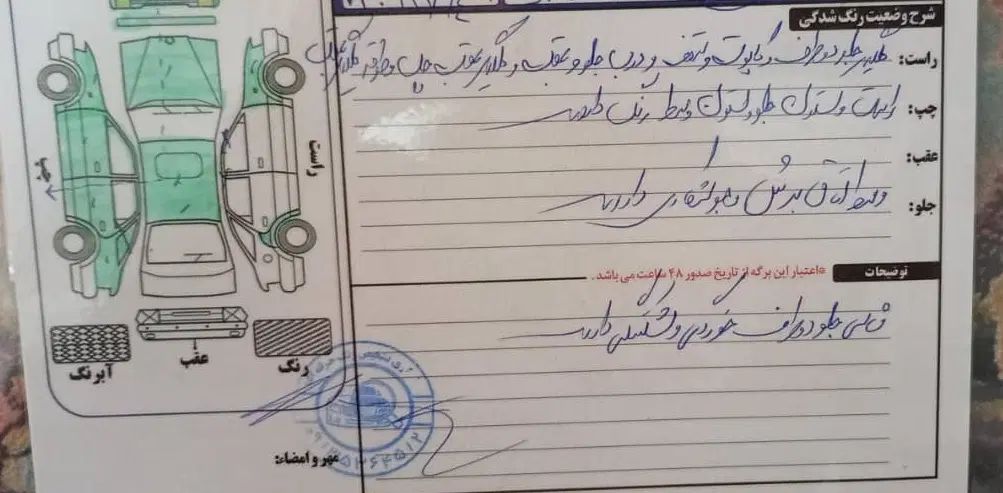 شرح وضعیت رنگ شدگی
راست: گلگیر جلو دو طرف و کاپوت و سقف و درب جلو و عقب و گلگیر عقب چپ و
چپ: راست و ستون جلو و ستون وسط رنگ دارد
عقب:
جلو: وسط اتاق برش و جوشکاری دارد
توضیحات
*اعتبار این برگه از تاریخ صدور ۴۸ ساعت می باشد.
جلو دو طرف خوردگی و دارد
راست
چپ
عقب
رنگ
آبرنگ
مهر و امضاء: